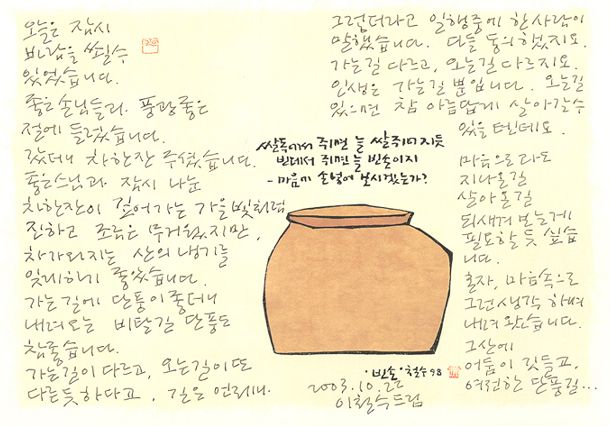 오늘은 잠시
바람을 쐴 수
있었습니다.
좋은 손님들과 풍광 좋은
절에 들렀습니다.
갔더니 차 한잔 주셨습니다.
좋은 스님과 잠시 나눈
차 한잔이 깊어가는 가을빛처럼
진하고 조금은 무거웠지만,
차가와지는 산의 냉기를
잊게하기 좋았습니다.
가는 길에 단풍이 좋더니
내려오는 비탈길 단풍도
참 좋습니다.
가는 길이 다르고, 오는 길이 또
다른 듯 하다고, 길은 언제나
그렇더라고 일행중에 한 사람이
말했습니다. 다들 동의했지요.
가는길 다르고, 오는길 다르지요.
인생은 가는 길 뿐입니다. 오는길
있으면 참 아름답게 살아갈 수
있을텐데요.
마음으로라도
지나온 길
살아온 길
되새겨 보는게
필요할 듯 싶습
니다.
혼자, 마음속으로
그런 생각 하며
내려왔습니다.
그 산에
어둠이 깃들고,
여전한 단풍길...
쌀독에서 쥐면 늘 쌀 쥐어지듯
빈데서 쥐면 늘 빈손이지
- 마음에 손 넣어 보시겠는가?
·빈손· 철수 98
2003.10.22
이철수 드림